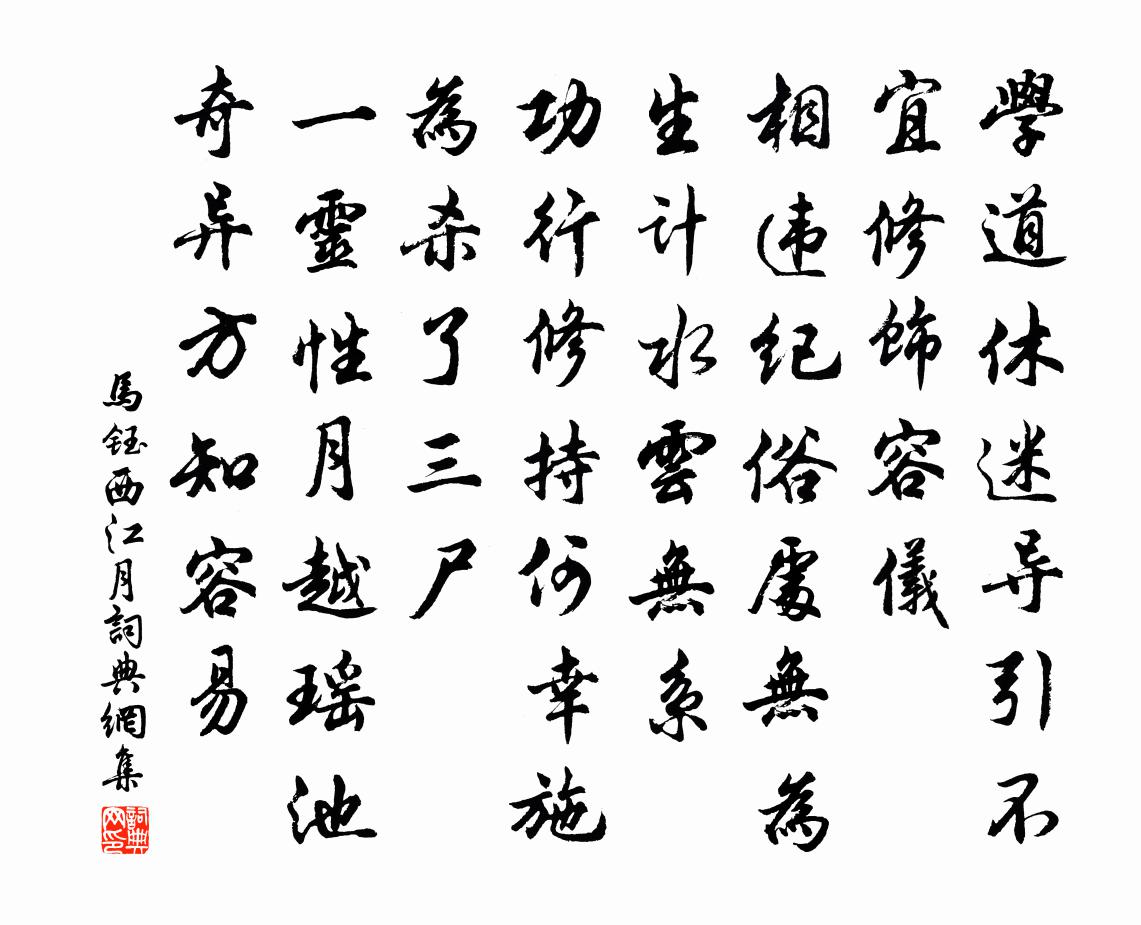 學道休迷导引不
宜修飾容儀
相违纪俗處無為
生计水雲無系
功行修持何幸施
為杀了三尸
一靈性月越瑶池
奇异方知容易
馬钰西江月詞典網集
詞典
网印